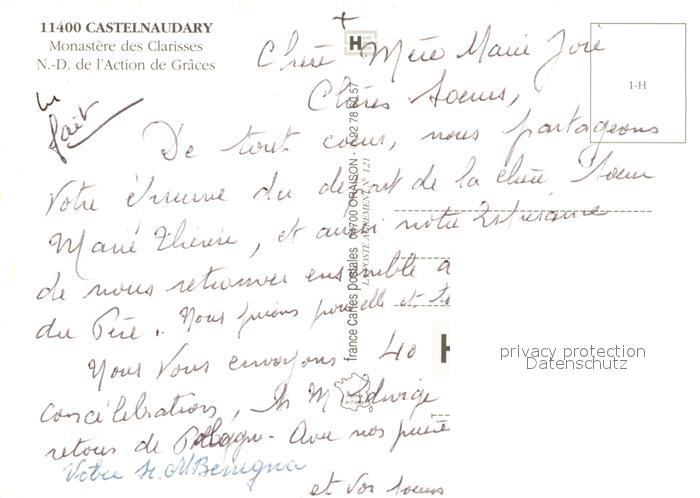 11400 CASTELNAUDARY
Monastère des Clarisses
N.-D. de l'Action de Grâces
lu
fait
H
1-H
Chère Mère Marie José
Chères Soeurs,
De tout coeur, nous partageons
votre épreuve du départ de la chère Soeur
Marie Thérèse, et aussi notre Espérance
de nous retrouver ensemble a
du Père. Nous prions pour elle et
Nous vous envoyons 40
concélébrations, M Edwige
retour de Pologne. Avec nos prières
Votre Sr. M Benigna
et vos soeurs
france Cartes postales 04700 ORAISON - 92 78 61 57
LA POSTE AGREMENT N° 121
H
privacy protection
Datenschutz